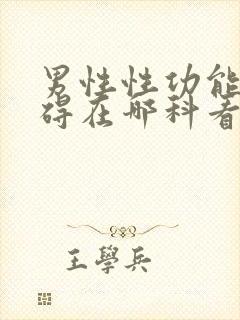 男性性功能
碍在哪科看
王學兵